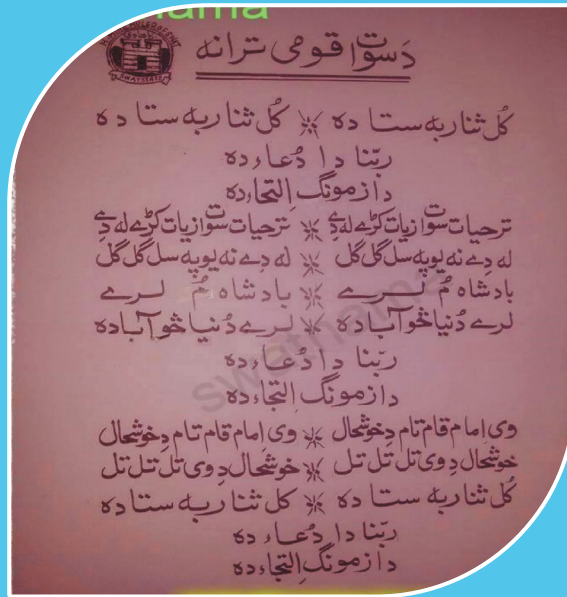 nama
SWAT STATE
دَسوات قومی ترانه
کُل ثنا ربه ستا ده ※ کُل ثنا ربه ستا ده
ربّنا دا دُعاء ده
دا زمونگ اِلتجاء ده
ترحیات سوات زیات کړے له دِے ※ ترحیات سوات زیات کړے له دِے
له دِے نه یو په سل گل گل ※ له دِے نه یو په سل گل گل
بادشاه مُ لرے ※ بادشاه مُ لرے
لرے دُنیا څو آباده ※ لرے دُنیا څو آباده
ربّنا دا دُعاء ده
دا زمونگ اِلتجاء ده
وی اِمام قام تام دِ خوشحال ※ وی اِمام قام تام دِ خوشحال
خوشحال دِ وی تل تل تل ※ خوشحال دِ وی تل تل تل
کُل ثنا ربه ستا ده ※ کل ثنا ربه ستا ده
ربّنا دا دُعاء ده
دا زمونگ اِلتجاء ده
swatnama